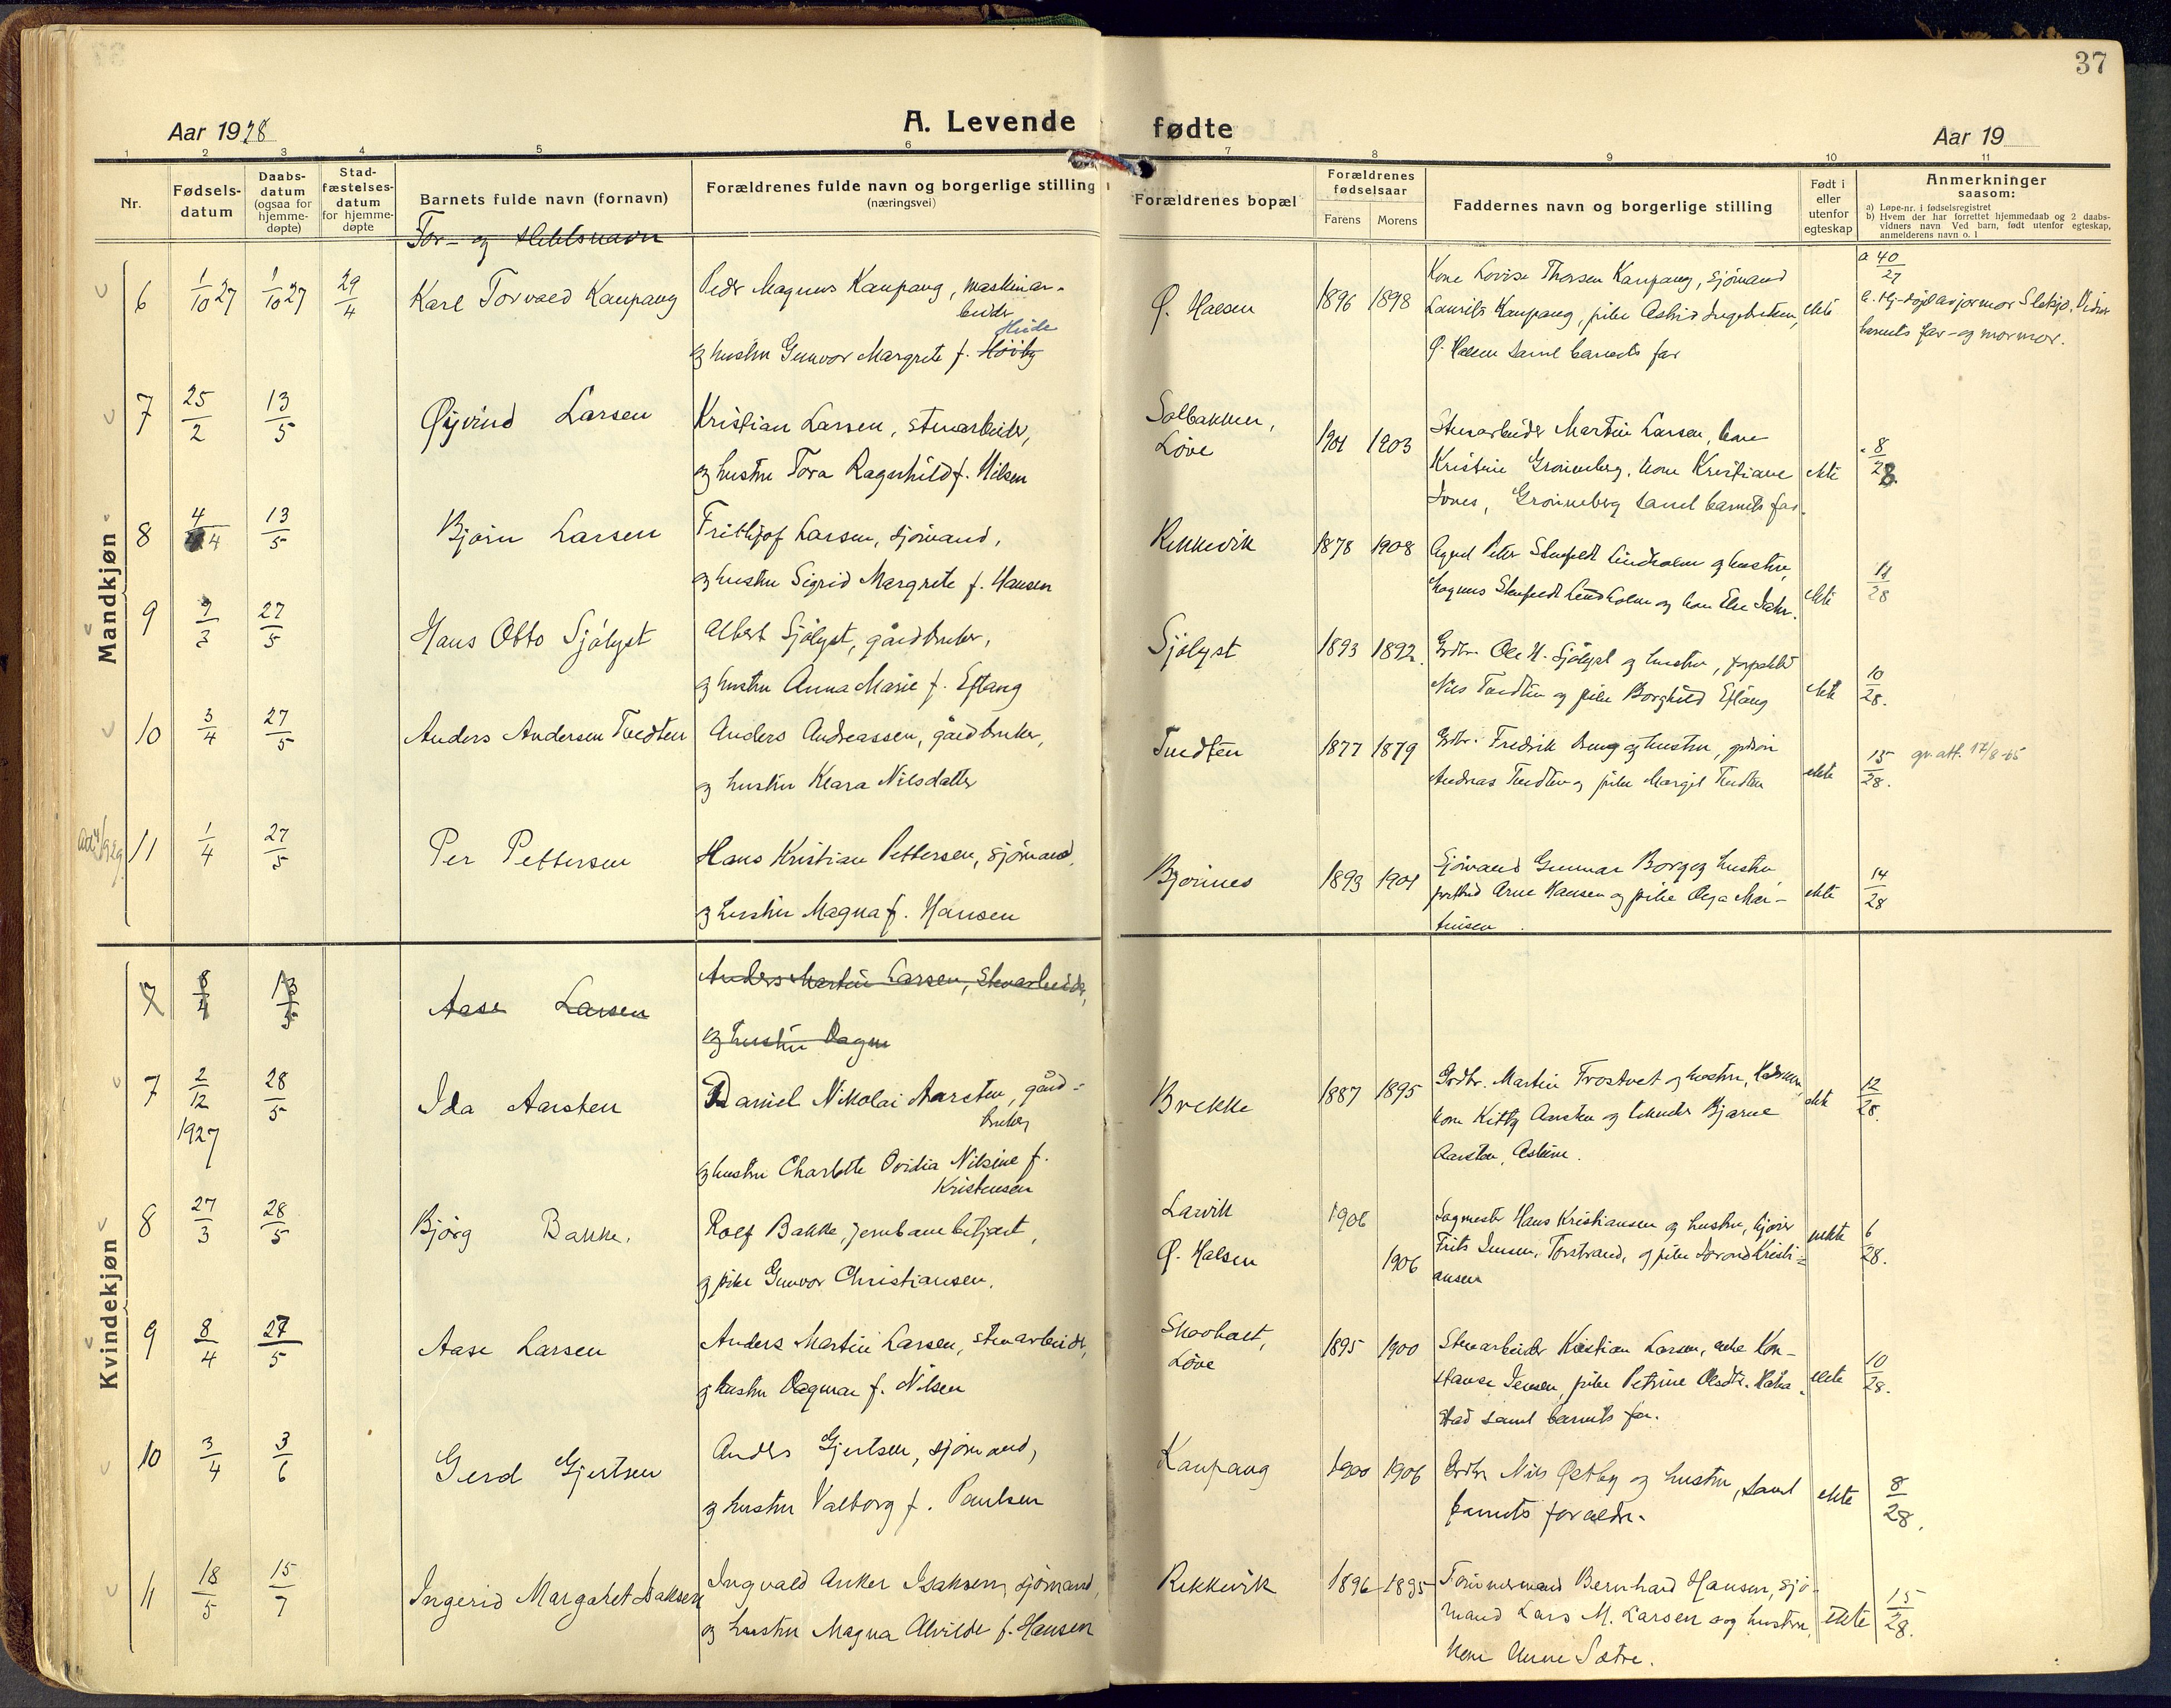 37
Aar 1928
A. Levende fødte
Aar 19
1 2 3 4 5 6 7 8 9 10 11
Nr.
Fødsels-
datum
Daabs-
datum
(ogsaa for
hjemme-
døpte)
Stad-
fæstelses-
datum
for hjemme-
døpte
Barnets fulde navn (fornavn)
Forældrenes fulde navn og borgerlige stilling
(næringsvei)
Forældrenes bopæl
Forældrenes
fødselsaar
Farens Morens
Faddernes navn og borgerlige stilling
Født i
eller
utenfor
egteskap
Anmerkninger
saasom:
a) Løpe-nr. i fødselsregistret
b) Hvem der har forrettet hjemmedaab og 2 daabs-
vidners navn Ved barn, født utenfor egteskap,
anmelderens navn o. l
For- og
Mandkjøn
6 1/10 27 1/10 27 29/4 Karl Torvald Kaupang
Peder Magnus Kaupang, maskinar-
beider
Hvide
og hustru Gunvor Margrete f. Høiby
Ø. Halsen 1896 1898
Kone Lovise Thorsen Kaupang, sjømand
Laurits Kaupang, pike Astrid Ingebretsen,
Ø. Halsen samt barnets far
ekte
a 40/27
barnets far- og mormor.
7 25/2 13/5 Øyvind Larsen
Kristian Larsen, stenarbeider,
og hustru Tora Ragnhild f. Nilsen
Solbakken,
Løve
1901 1903
Stenarbeider Martin Larsen, kone
Kristine Grønneberg, kone Kristiane
Grønneberg samt barnets far.
ekte
8/28
8 4/4 13/5 Bjørn Larsen
Frithjof Larsen, sjømand,
og hustru Sigrid Margrete f. Hansen
Rekkevik 1878 1908
Lindholm og hustru,
Lindholm og
ekte
11/28
9 9/3 27/5 Hans Otto Sjølyst
Albert Sjølyst, gårdbruker,
og hustru Anna Marie f. Eftang
Sjølyst 1893 1892
Grdbr. Ole H. Sjølyst og hustru, forpakter
Nils Tvedten og pike Borghild Eftang
ekte
10/28.
10 3/4 27/5 Anders Andersen Tvedten
Anders Andreassen, gårdbruker,
og hustru Klara Nilsdatter
Tvedten 1877 1879
Grdbr. Fredrik og hustru,
Andreas Tvedten og pike Margit Tvedten
ekte
15/28.
11 1/4 27/5 Per Pettersen
Hans Kristian Pettersen, sjømand,
og hustru Magna f. Hansen
Bjønnes 1893 1901
Sjømand Gunnar Borg og hustru,
Arne Hansen og pike Olga Mar-
tinsen
ekte
14/28
Kvindekjøn
7 8/4 13/5 Aase Larsen
Anders Martin Larsen, Stenarbeider,
og hustru Dagm
7 2/12 1927 28/5 Ida Aarsten
Daniel Nikolai Aarsten, gård-
bruker
og hustru Charlotte Ovidia Nilsine f.
Kristensen
Brekke 1887 1895
Grdbr. Martin Trostvet og hustru,
kone Kitty Aarsten og Bjarne
Aarsten,
ekte
12/28.
8 27/3 28/5 Bjørg Bakke.
Rolf Bakke, jernbanebetjent,
og pike Gunvor Christiansen.
Larvik 1906
Ø. Halsen 1906
Sagmester Hans Kristiansen og hustru,
Frits Jensen, Torstrand, og pike Kristi-
ansen
uekte
6/28.
9 8/4 27/5 Aase Larsen
Anders Martin Larsen, stenarbeider,
og hustru Dagmar f. Nilsen
Skovholt,
Løve
1895 1900
Stenarbeider Kristian Larsen, enke Kon-
stanse Jensen, pike Petrine Olsdtr.
stad samt barnets far.
ekte
10/28.
10 3/4 3/6 Gerd Gjertsen
Anders Gjertsen, sjømand,
og hustru Valborg f. Paulsen
Kaupang 1900 1906
Grdbr Nils Østby og hustru, samt
barnets foreldre.
ekte
8/28.
11 18/5 15/7 Ingerid Margaret Isaksen
Ingvald Anker Isaksen, sjømand,
og hustru Magna Alvilde f. Hansen
Rekkevik 1896 1895
Tømmermand Bernhard Hansen, sjø-
mand Lars M. Larsen og hustru,
Sætre.
ekte
15/28.